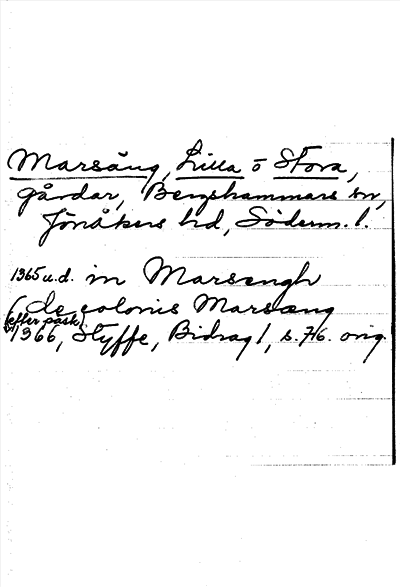 Marsäng, Lilla o Stora,
gårdar, Bergshammars sn,
Jönåkers hd, Söderm. l.
1365 u.d. in Marsengh
(de colonis Marsæng
(efter påsk)
1366, Styffe, Bidrag 1, s. 76. orig.